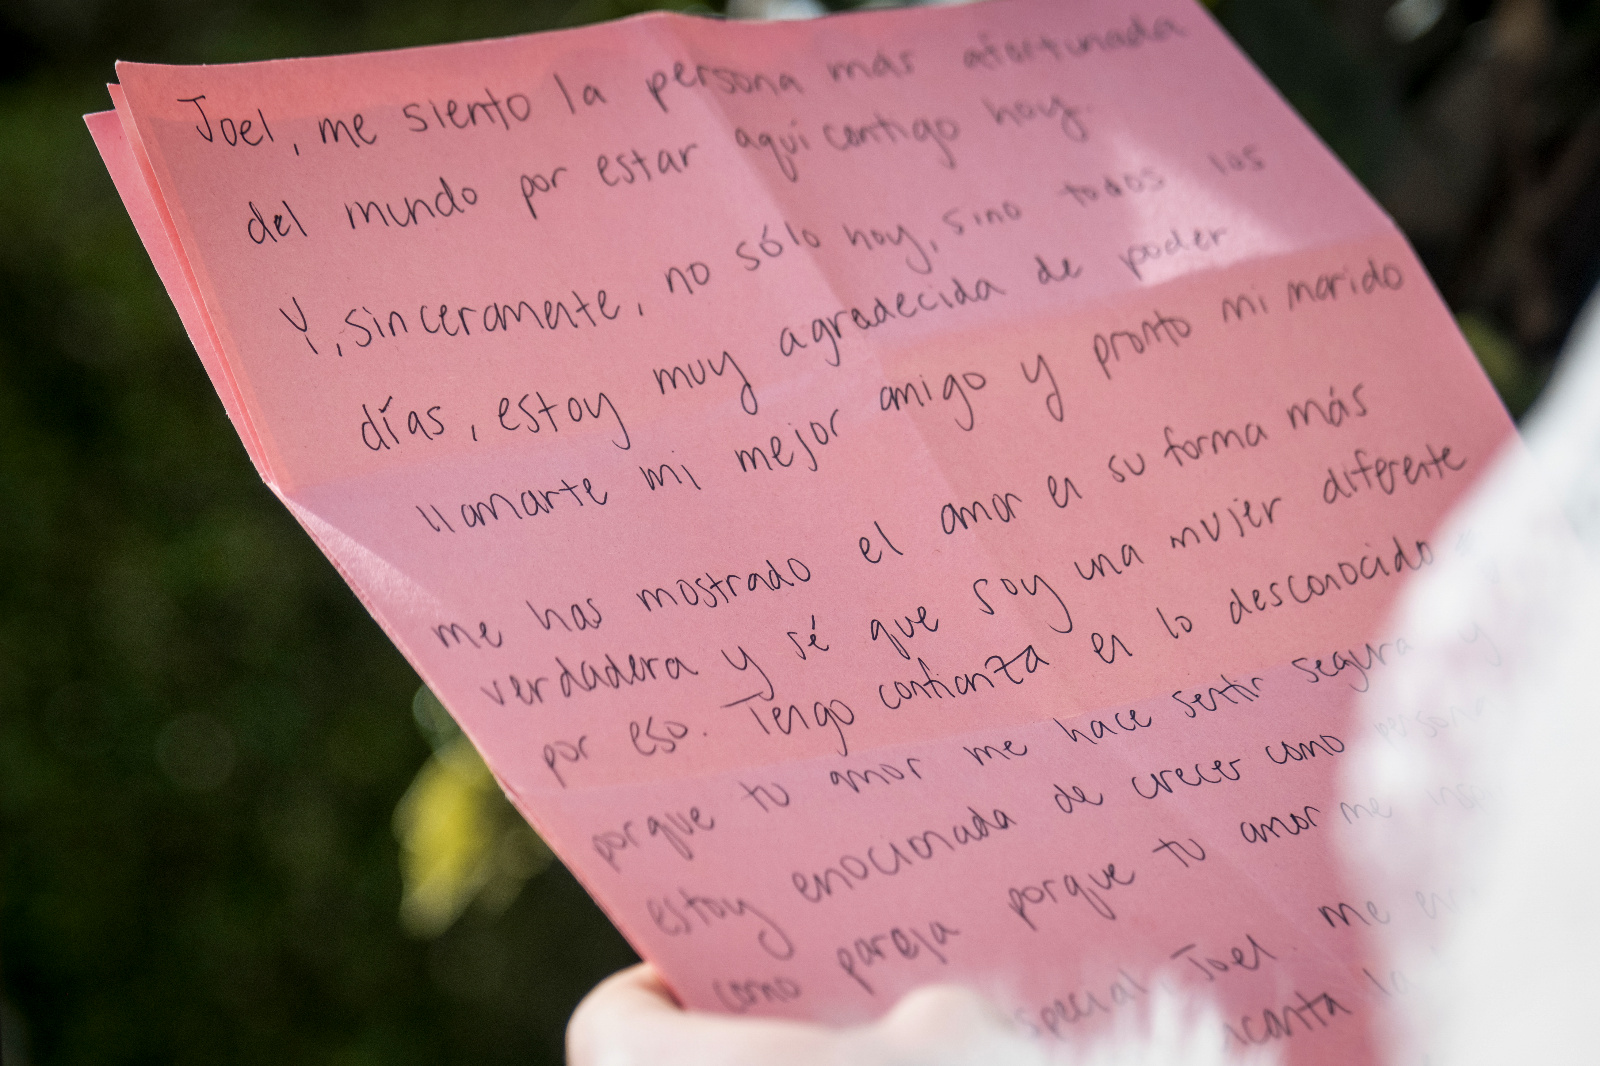 Joel, me siento la persona más afortunada
del mundo por estar aquí contigo hoy.
Y, sinceramente, no sólo hoy, sino todos los
días, estoy muy agradecida de poder
llamarte mi mejor amigo y pronto mi marido
me has mostrado el amor en su forma más
verdadera y sé que soy una mujer diferente
por eso. Tengo confianza en lo desconocido
porque tu amor me hace sentir segura y
estoy emocionada de crecer como
como pareja porque tu amor me
especial, Joel. me
encanta la